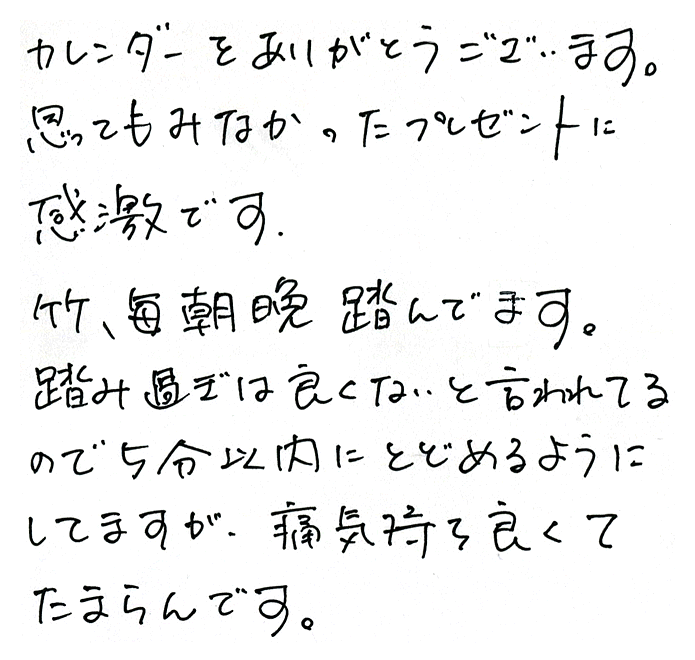 カレンダーをありがとうございます。
思ってもみなかったプレゼントに
感激です.
竹、毎朝晩踏んでます。
踏み過ぎは良くないと言われてる
ので5分以内にとどめるように
してますが、痛気持ち良くて
たまらんです。